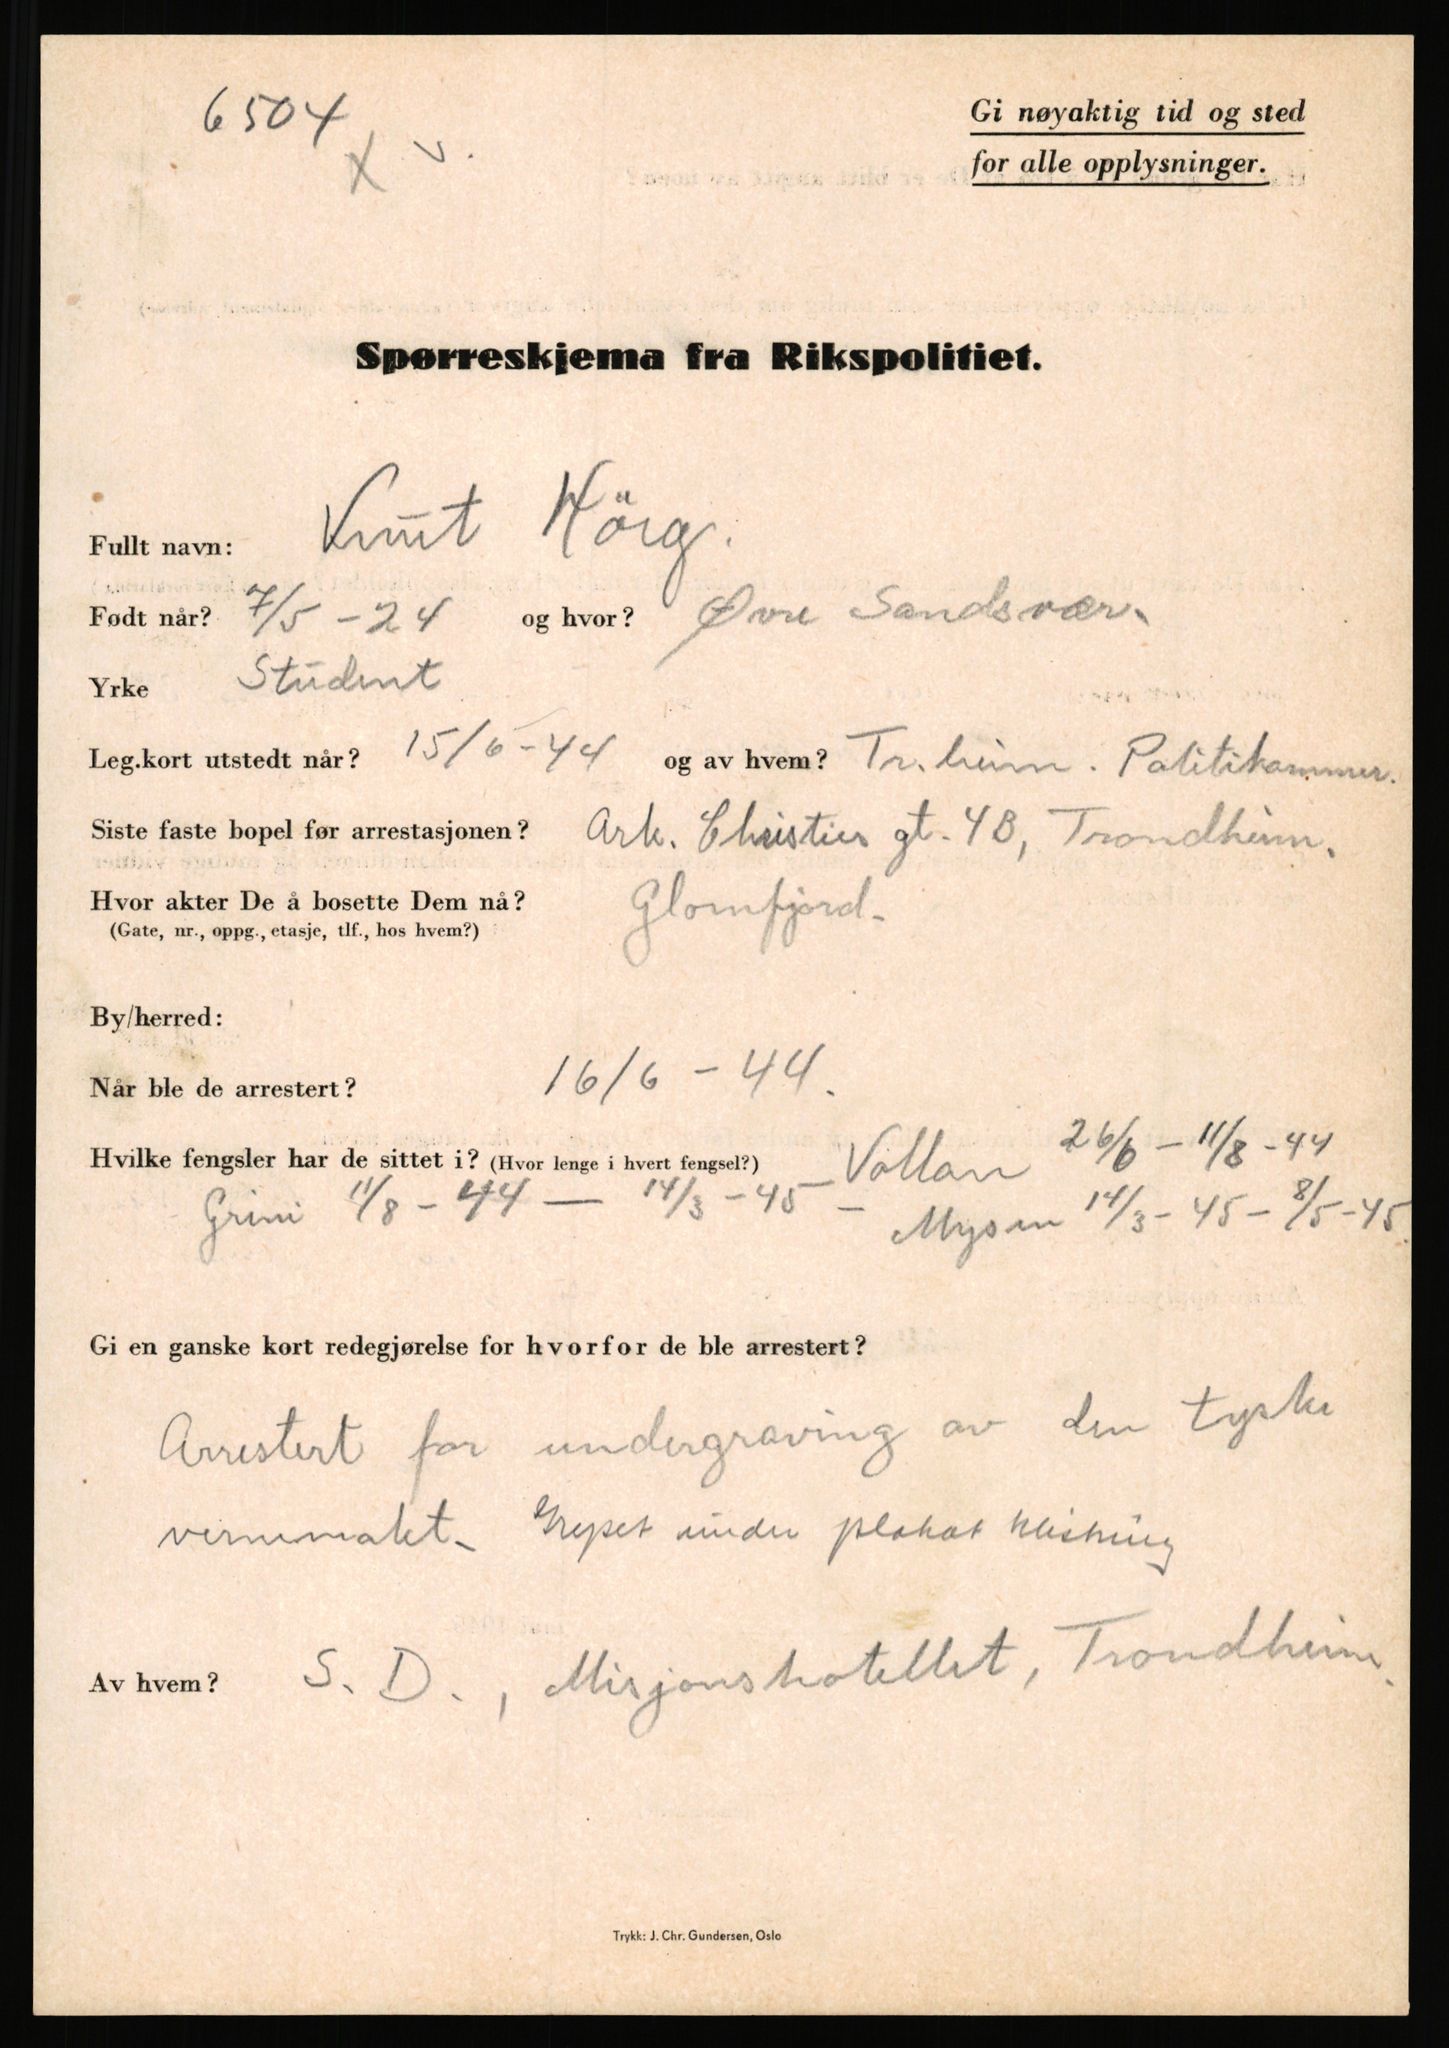 6504
X v.
Gi nøyaktig tid og sted
for alle opplysninger.
Spørreskjema fra Rikspolitiet.
Fullt navn: Knut Hörg.
Født når? 7/5 - 24 og hvor? Øvre Sandsvær.
Yrke Student
Leg.kort utstedt når? 15/6 - 44 og av hvem? Tr.heim. Politikammer.
Siste faste bopel før arrestasjonen? Ark. Christies gt. 4B, Trondheim.
Hvor akter De å bosette Dem nå? Glomfjord.
(Gate, nr., oppg., etasje, tlf., hos hvem?)
By/herred:
Når ble de arrestert? 16/6 - 44.
Hvilke fengsler har de sittet i? (Hvor lenge i hvert fengsel?) Vollan 26/6 - 11/8 - 44
Grini 11/8 - 44 — 14/3 - 45 - Mysen 14/3 - 45 - 8/5 - 45.
Gi en ganske kort redegjørelse for hvorfor de ble arrestert?
Arrestert for undergraving av den tyske
vernemakt. Grepet under plakat klistring
Av hvem? S. D., Misjonshotellet, Trondheim.
Trykk: J. Chr. Gundersen, Oslo